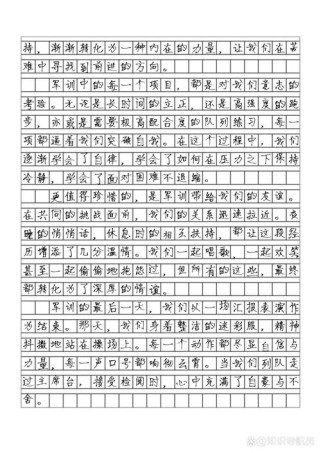 持，渐渐转化为一种内在的力量，让我们在苦
难中寻找到前进的方向。
军训中的每一个项目，都是对我们意志的
考验。无论是长时间的立正，还是高强度的跑
步，亦或是需要极高配合度的队列练习，每一
项都逼着我们突破自我。在这个过程中，我们
逐渐学会了自律，学会了如何在压力之下保持
冷静，学会了面对困难不退缩。
更值得珍惜的，是军训带给我们的友谊。
在共同的挑战面前，我们的关系迅速拉近。夜
晚的悄悄话，休息时的相互扶持，都让这段经
历增添了几分温情。我们一起唱歌，一起欢笑
甚至一起偷偷地抱怨过，但所有的这些，最终
都转化为了深厚的情谊。
军训的最后一天，我们以一场汇报表演作
为结束。那天，我们身着整洁的迷彩服，精神
抖擞地站在操场上。每一个动作都尽显自信与
力量，每一声口号都响彻云霄。当我们列队走
过主席台，接受检阅时，心中充满了自豪与不
舍。